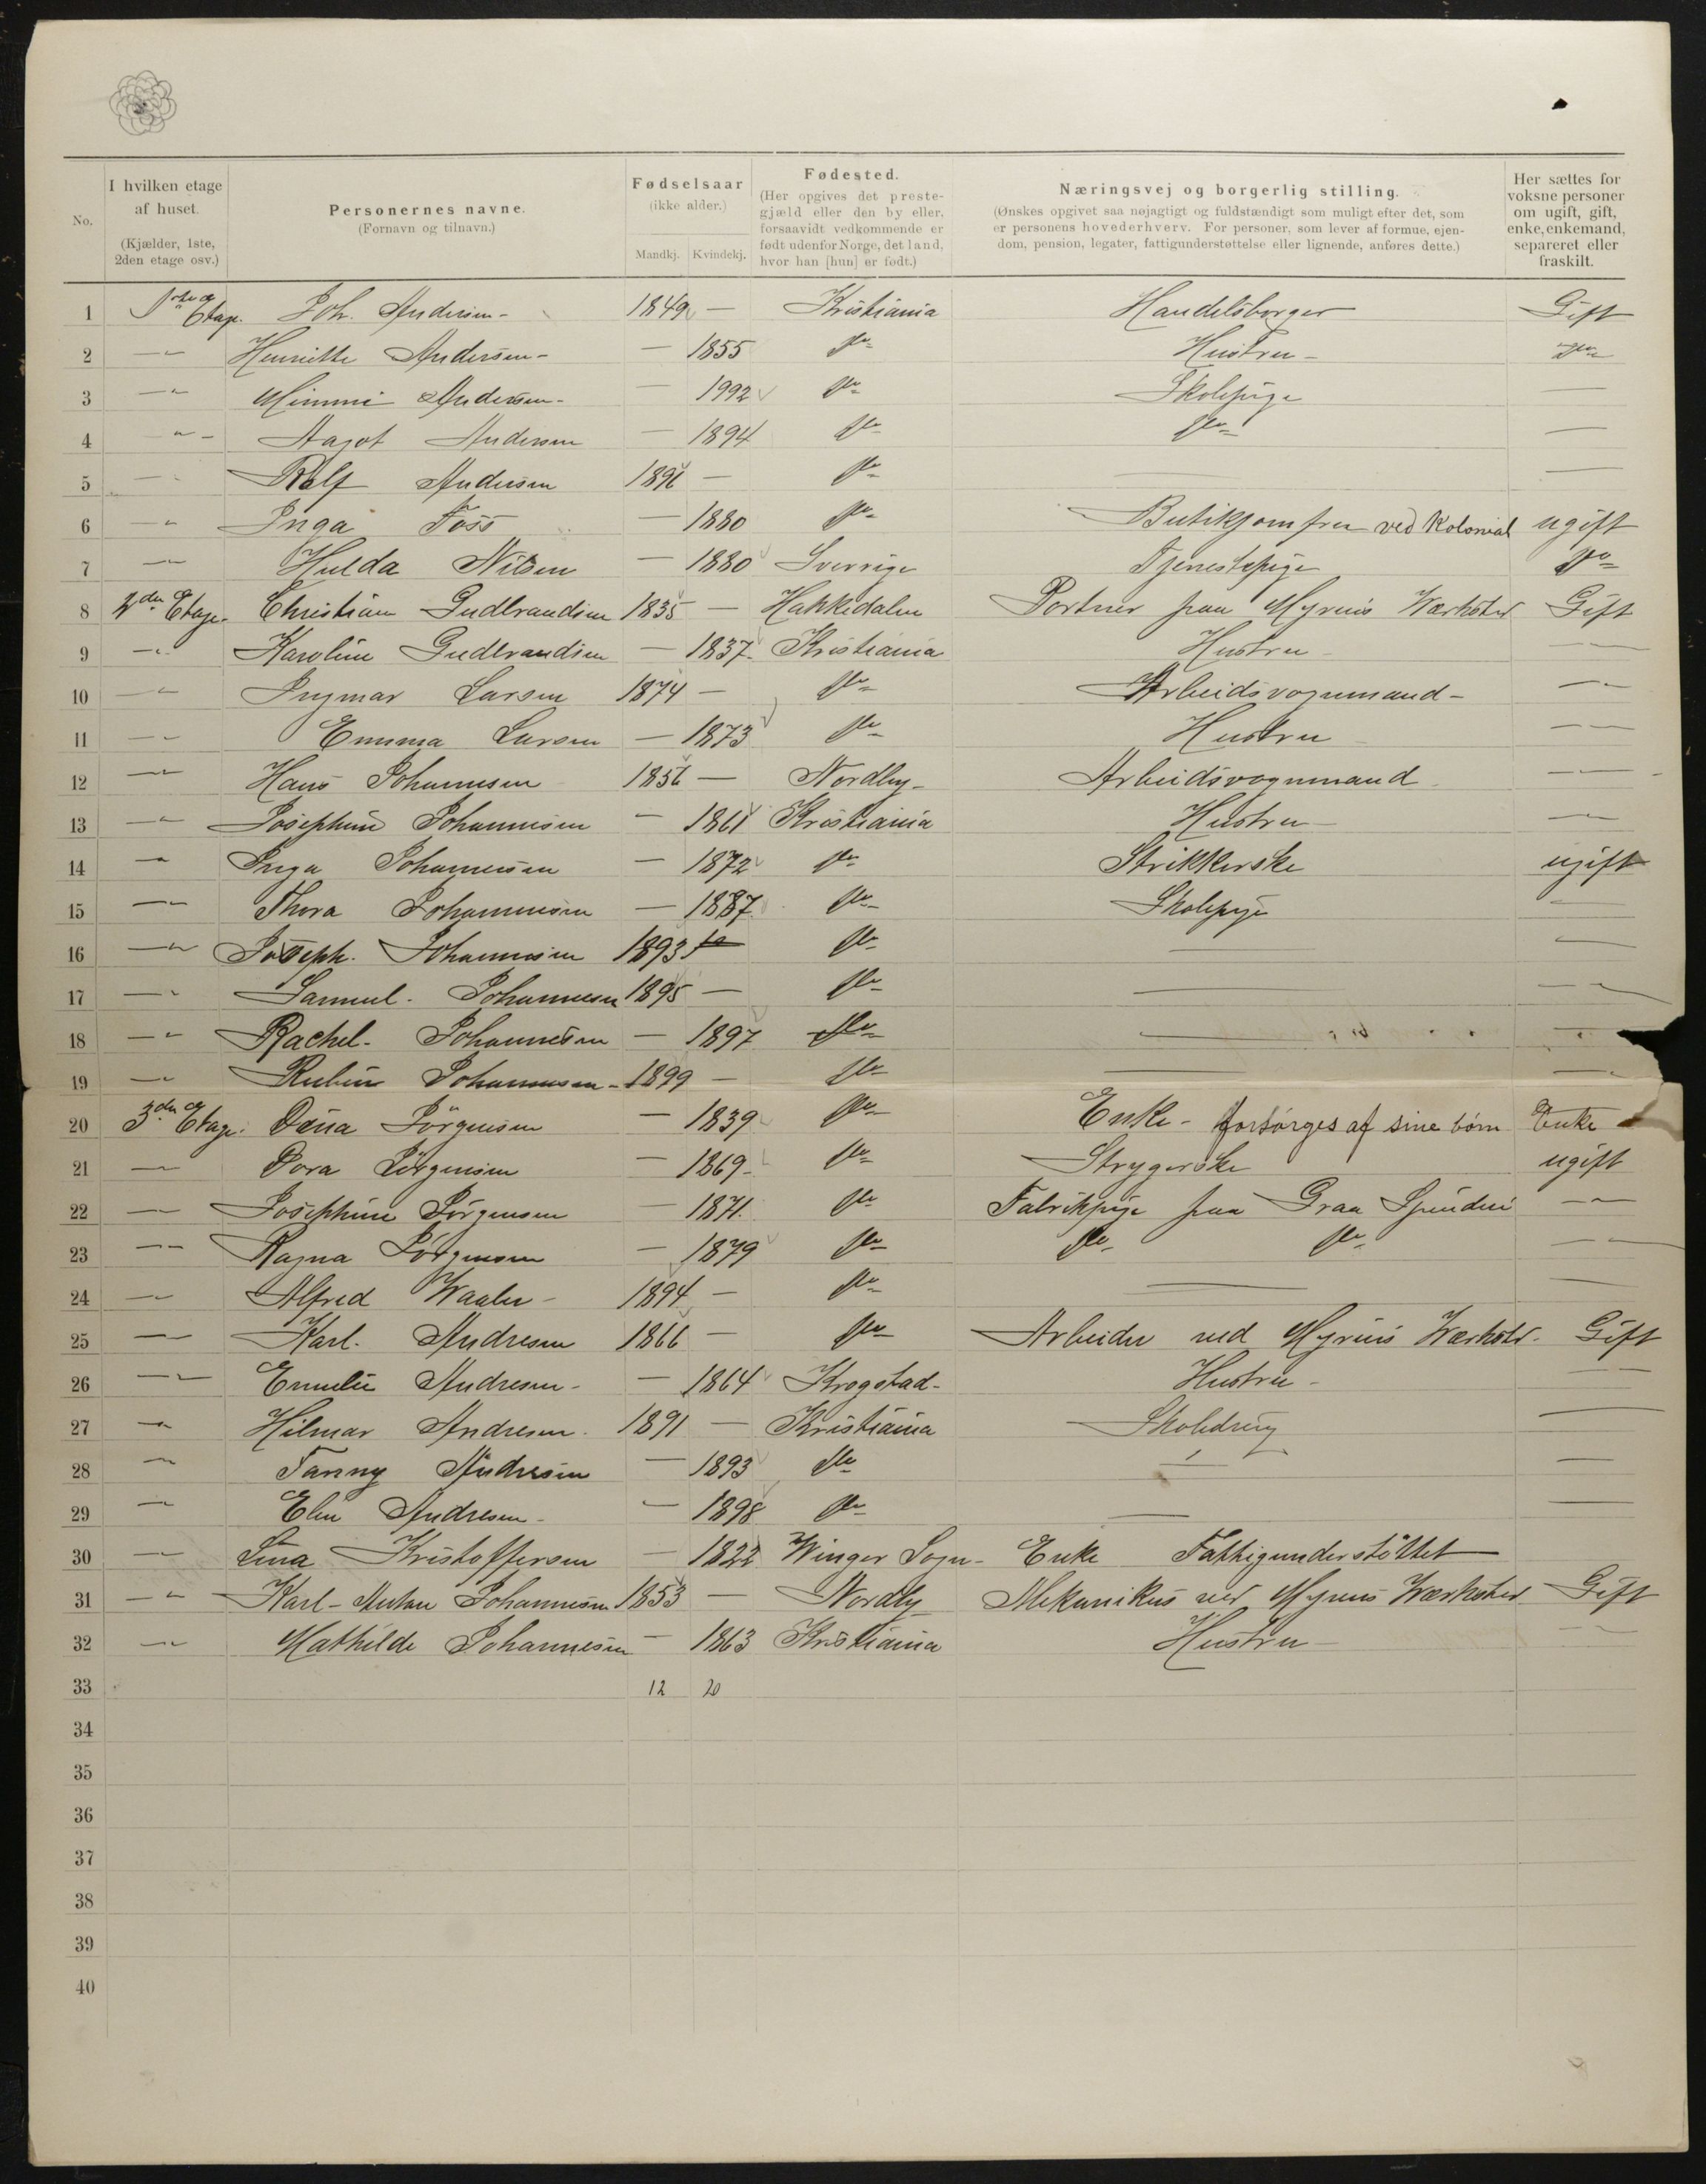 No. | I hvilken etage af huset. (Kjælder, 1ste, 2den etage osv.) | Personernes navne. (Fornavn og tilnavn.) | Fødselsaar (ikke alder.) Mandkj. Kvindekj. | Fødested. (Her opgives det prestegjæld eller den by eller, forsaavidt vedkommende er født udenfor Norge, det land, hvor han [hun] er født.) | Næringsvej og borgerlig stilling. (Ønskes opgivet saa nøjagtigt og fuldstændigt som muligt efter det, som er personens hovederhverv. For personer, som lever af formue, ejendom, pension, legater, fattigunderstøttelse eller lignende, anføres dette.) | Her sættes for voksne personer om ugift, gift, enke, enkemand, separeret eller fraskilt.
1 1ste Etage. Joh. Andersen - 1849 — Kristiania Handelsborger Gift
2 — " Henriette Andersen - — 1855 do Hustru - do
3 — " Mimmi Andersen - — 1992 do Skolepige —
4 " - Aagot Andersen — 1894 do do —
5 — " Rolf Andersen 1896 — do — —
6 — " Inga Foss — 1880 do Butikjomfru ved Kolonial ugift
7 — " Hulda Nilsen — 1880 Sverrige Tjenestepige do
8 2den Etage. Christian Gudbrandsen 1835 — Hakkedalen Portner paa Myrens Værksted Gift
9 — " Karoline Gudbrandsen — 1837 Kristiania Hustru — "
10 — " Ingmar Larsen 1874 — do Arbeidsvognmand - — "
11 — " Emma Larsen — 1873 do Hustru — "
12 — " Hans Johannesen 1856 — Nordby - Arbeidsvognmand — "
13 — " Josephine Johannesen — 1861 Kristiania Hustru — "
14 — " Inga Johannesen — 1872 do Strikkerske ugift
15 — " Thora Johannesen — 1887 do Skolepige —
16 — " Joseph. Johannesen 1893 do — —
17 — " Samuel. Johannesen 1895 — do — — "
18 — " Rachel - Johannesen — 1897 do — — "
19 — " Rubin Johannesen - 1899 — do — — "
20 3die Etage. Dina Jörgensen — 1839 do Enke - forsørges af sine børn Enke
21 — " Dora Jörgensen — 1869 do Strygerske ugift
22 — " Josephine Jörgensen — 1871 do Fabrikpige paa Graa Spinderi — "
23 — " Ragna Jörgensen — 1879 do do do — "
24 — " Alfred Waaler - 1894 — do — —
25 — " Karl. Andresen 1866 — do Arbeider ved Myrens Værksted. Gift
26 — " Emelie Andresen - — 1864 Krogstad - Hustru - — "
27 — " Hilmar Andresen 1891 — Kristiania Skoledreng —
28 — " Fanny Andresen — 1893 do — —
29 — " Elin Andresen - — 1898 do — —
30 — " Lina Kristoffersen — 1822 Winger Sogn - Enke Fattigunderstöttet
31 — " Karl - Anton Johannesen 1853 — Nordby Mekanikus ved Myrens Værksted Gift
32 — " Mathilde Johannesen — 1863 Kristiania Hustru — "
33 12 20
34
35
36
37
38
39
40